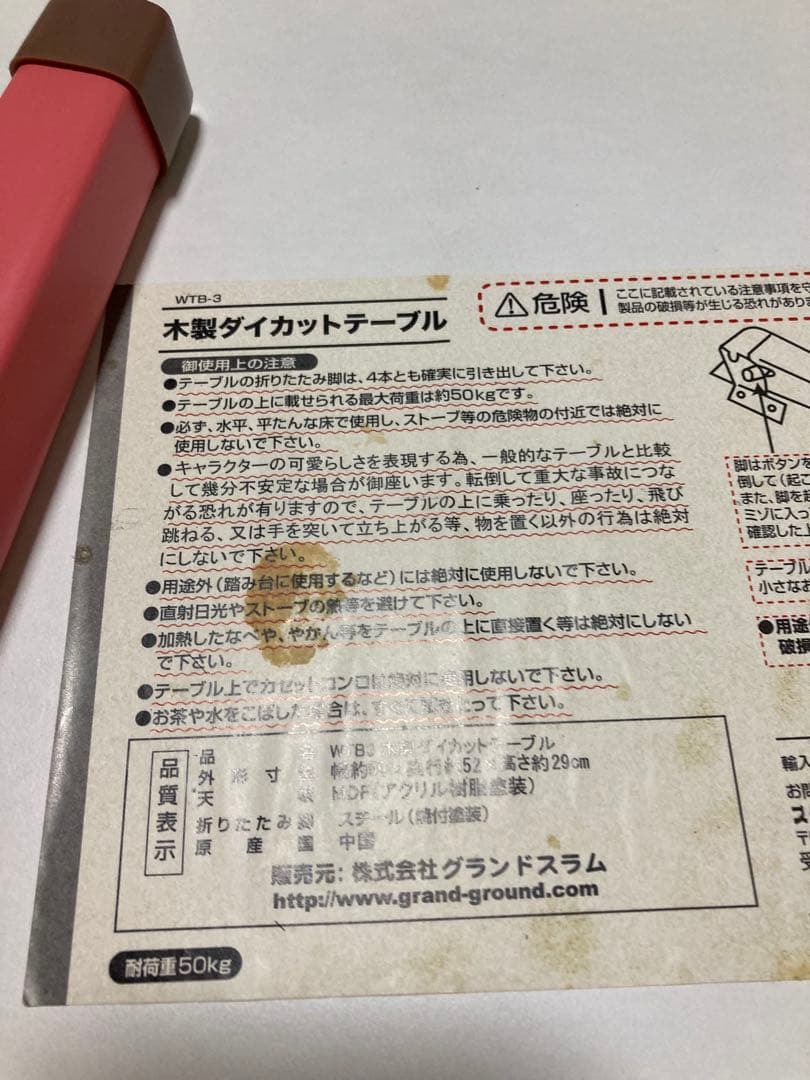 WTB-3
木製ダイカットテーブル
危険
ここに記載されている注意事項を守
製品の破損等が生じる恐れがありま
御使用上の注意
●テーブルの折りたたみ脚は、4本とも確実に引き出して下さい。
●テーブルの上に載せられる最大荷重は約50kgです。
●必ず、水平、平たんな床で使用し、ストーブ等の危険物の付近では絶対に
使用しないで下さい。
●キャラクターの可愛らしさを表現する為、一般的なテーブルと比較
して幾分不安定な場合が御座います。転倒して重大な事故につな
がる恐れが有りますので、テーブルの上に乗ったり、座ったり、飛び
跳ねる、又は手を突いて立ち上がる等、物を置く以外の行為は絶対
にしないで下さい。
●用途外(踏み台に使用するなど)には絶対に使用しないで下さい。
●直射日光やストーブの熱等を避けて下さい。
●加熱したなべや、やかん等をテーブルの上に直接置く等は絶対にしない
で下さい。
●テーブル上でカセットコンロは絶対に使用しないで下さい。
●お茶や水をこぼした場合は、すぐに
って下さい。
脚はボタンを
倒して(起こ
また、脚を起
ミゾに入っ
確認した上
テーブル
小さなお
●用途外
破損
品質表示
品名 WTB3 木製ダイカットテーブル
外形寸 幅約 奥行約52×高さ約29cm
天 MDF(アクリル樹脂塗装)
折りたたみ脚 スチール(焼付塗装)
原産国 中国
販売元:株式会社グランドスラム
http://www.grand-ground.com
輸入
お問
ス
〒
受
耐荷重50kg